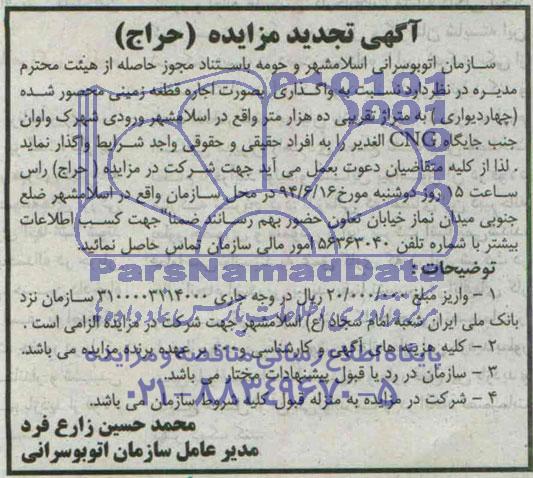 آگهی تجدید مزایده (حراج)
سازمان اتوبوسرانی اسلامشهر و حومه باستناد مجوز حاصله از هیئت محترم
مدیره در نظردارد نسبت به واگذاری (بصورت اجاره قطعه زمینی محصور شده
(چهاردیواری) به متراژ تقریبی ده هزار متر واقع در اسلامشهر ورودی شهرک واوان
جنب جایگاه CNG الغدیر را به افراد حقیقی و حقوقی واجد شرایط واگذار نماید
. لذا از کلیه متقاضیان دعوت بعمل می آید جهت شرکت در مزایده (حراج) راس
ساعت ۱۵ روز دوشنبه مورخ ۹۴/۶/۱۶ در محل سازمان واقع در اسلامشهر ضلع
جنوبی میدان نماز خیابان تعاون حضور بهم رسانند ضمنا جهت کسب اطلاعات
بیشتر با شماره تلفن ۵۶۳۶۳۰۴۰ امور مالی سازمان تماس حاصل نمائید
ParsNamadData
توضیحات :
۱ – واریز مبلغ ۲۰/۰۰۰/۰۰۰ ریال در وجه جاری ۳۱۰۰۰۰۳۲۱۴۰۰۰ سازمان نزد
بانک ملی ایران شعبه امام سجاد (ع) اسلامشهر جهت شرکت در مزایده الزامی است .
۲ – کلیه هزینه های آگهی و کارشناسی و ... بر عهده برنده مزایده می باشد.
پایگاه اطلاع رسانی مناقصه و مزایده
۳ – سازمان در رد یا قبول پیشنهادات مختار می باشد.
۰۲۱-۸۸۳۴۹۶۷۰-۵
۴ – شرکت در مزایده به منزله قبول کلیه شروط سازمان می باشد.
محمد حسین زارع فرد
مدیر عامل سازمان اتوبوسرانی